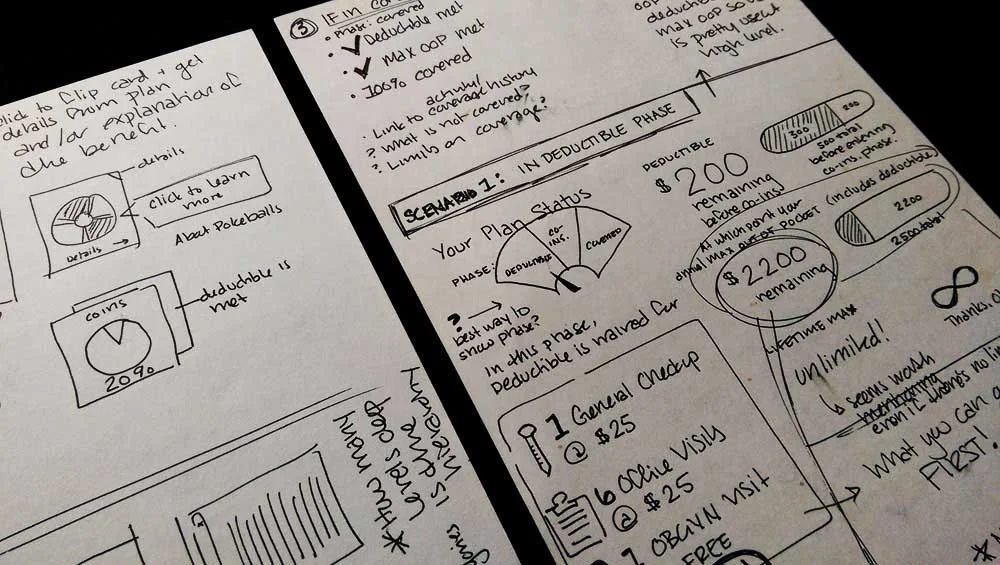 Click to flip card + get
details from plan
and/or explanation of
the benefit.
details
click to learn
more
Details →
About Pokeballs
coins
20%
deductible is
met
* How many
levels deep
is the
hierarchy
3 IF IN
• Phase: covered
✓ Deductible met
✓ MAX OOP met
• 100% covered
activity/
• Link to coverage history
? What is not covered?
? Limits on coverage?
OOP
max OOP so
is pretty
high level.
SCENARIO 1: IN DEDUCTIBLE PHASE
Your Plan Status
PHASE:
DEDUCTIBLE
CO-
INS.
COVERED
? →
best way to
show phase?
DEDUCTIBLE
$200
remaining
before co-ins
300
200
500 total
before entering
co-ins. phase.
At which point your
annual MAX OUT OF POCKET (includes deductible)
$2200
remaining
2200
2500 total
LIFETIME MAX
∞
unlimited!
Thanks,
↳ seems worth
mentioning
even if there's no
In this phase,
Deductible is waived for
1 General Checkup
@ $25
6 Office Visits
@ $25
1 OBGYN visit
FREE
What you can
FIRST!